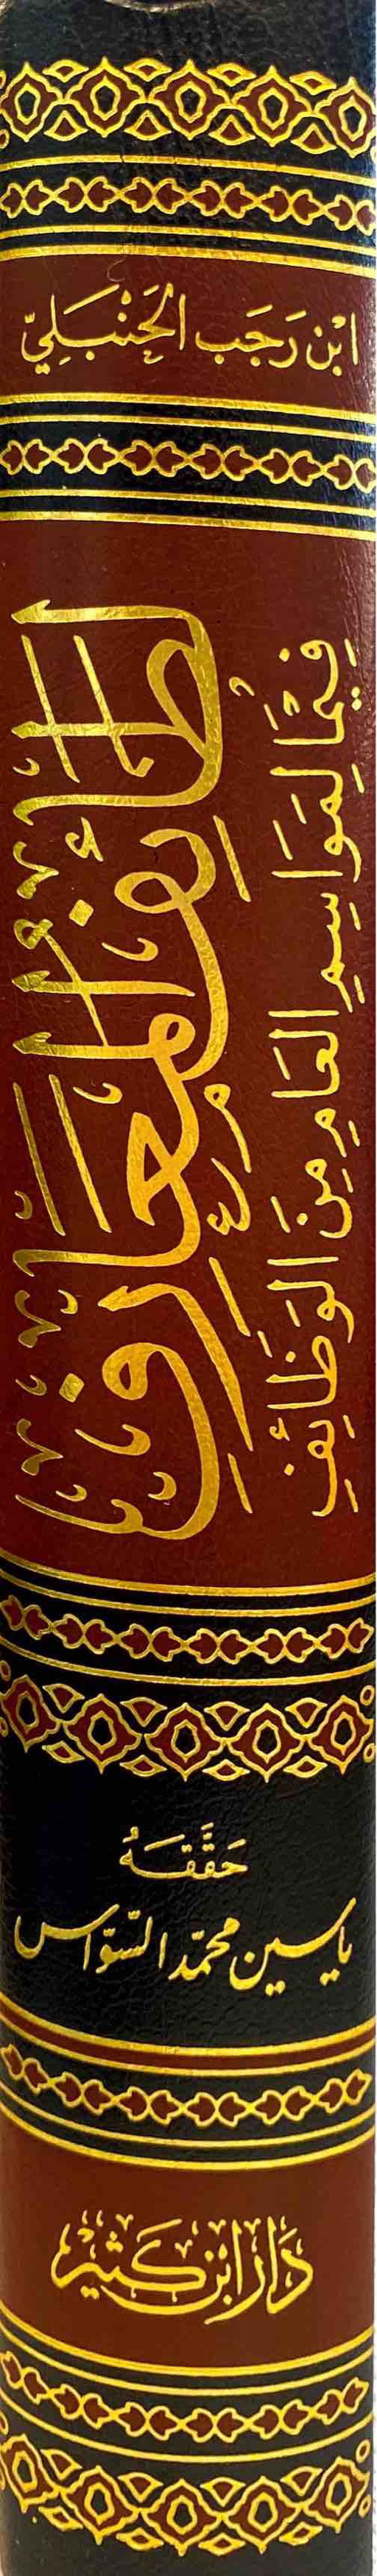 ابْن رَجَب الحَنْبَلِيّ
لطائف المعارف
فِيمَا لِمَوَاسِمِ العَامِ مِنَ الوَظَائِفِ
حَقَّقَهُ
ياسين محمّد السّوّاس
دَار ابْن كَثِيْر